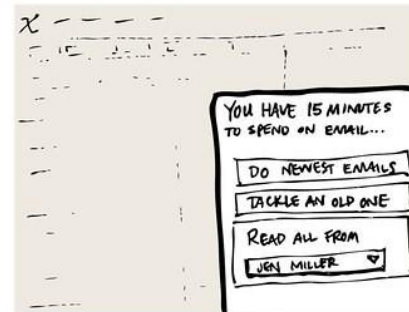 X
15
YOU HAVE 15 MINUTES
TO SPEND ON EMAIL...
DO NEWEST EMAILS
TACKLE AN OLD ONE
READ ALL FROM
JEN MILLER